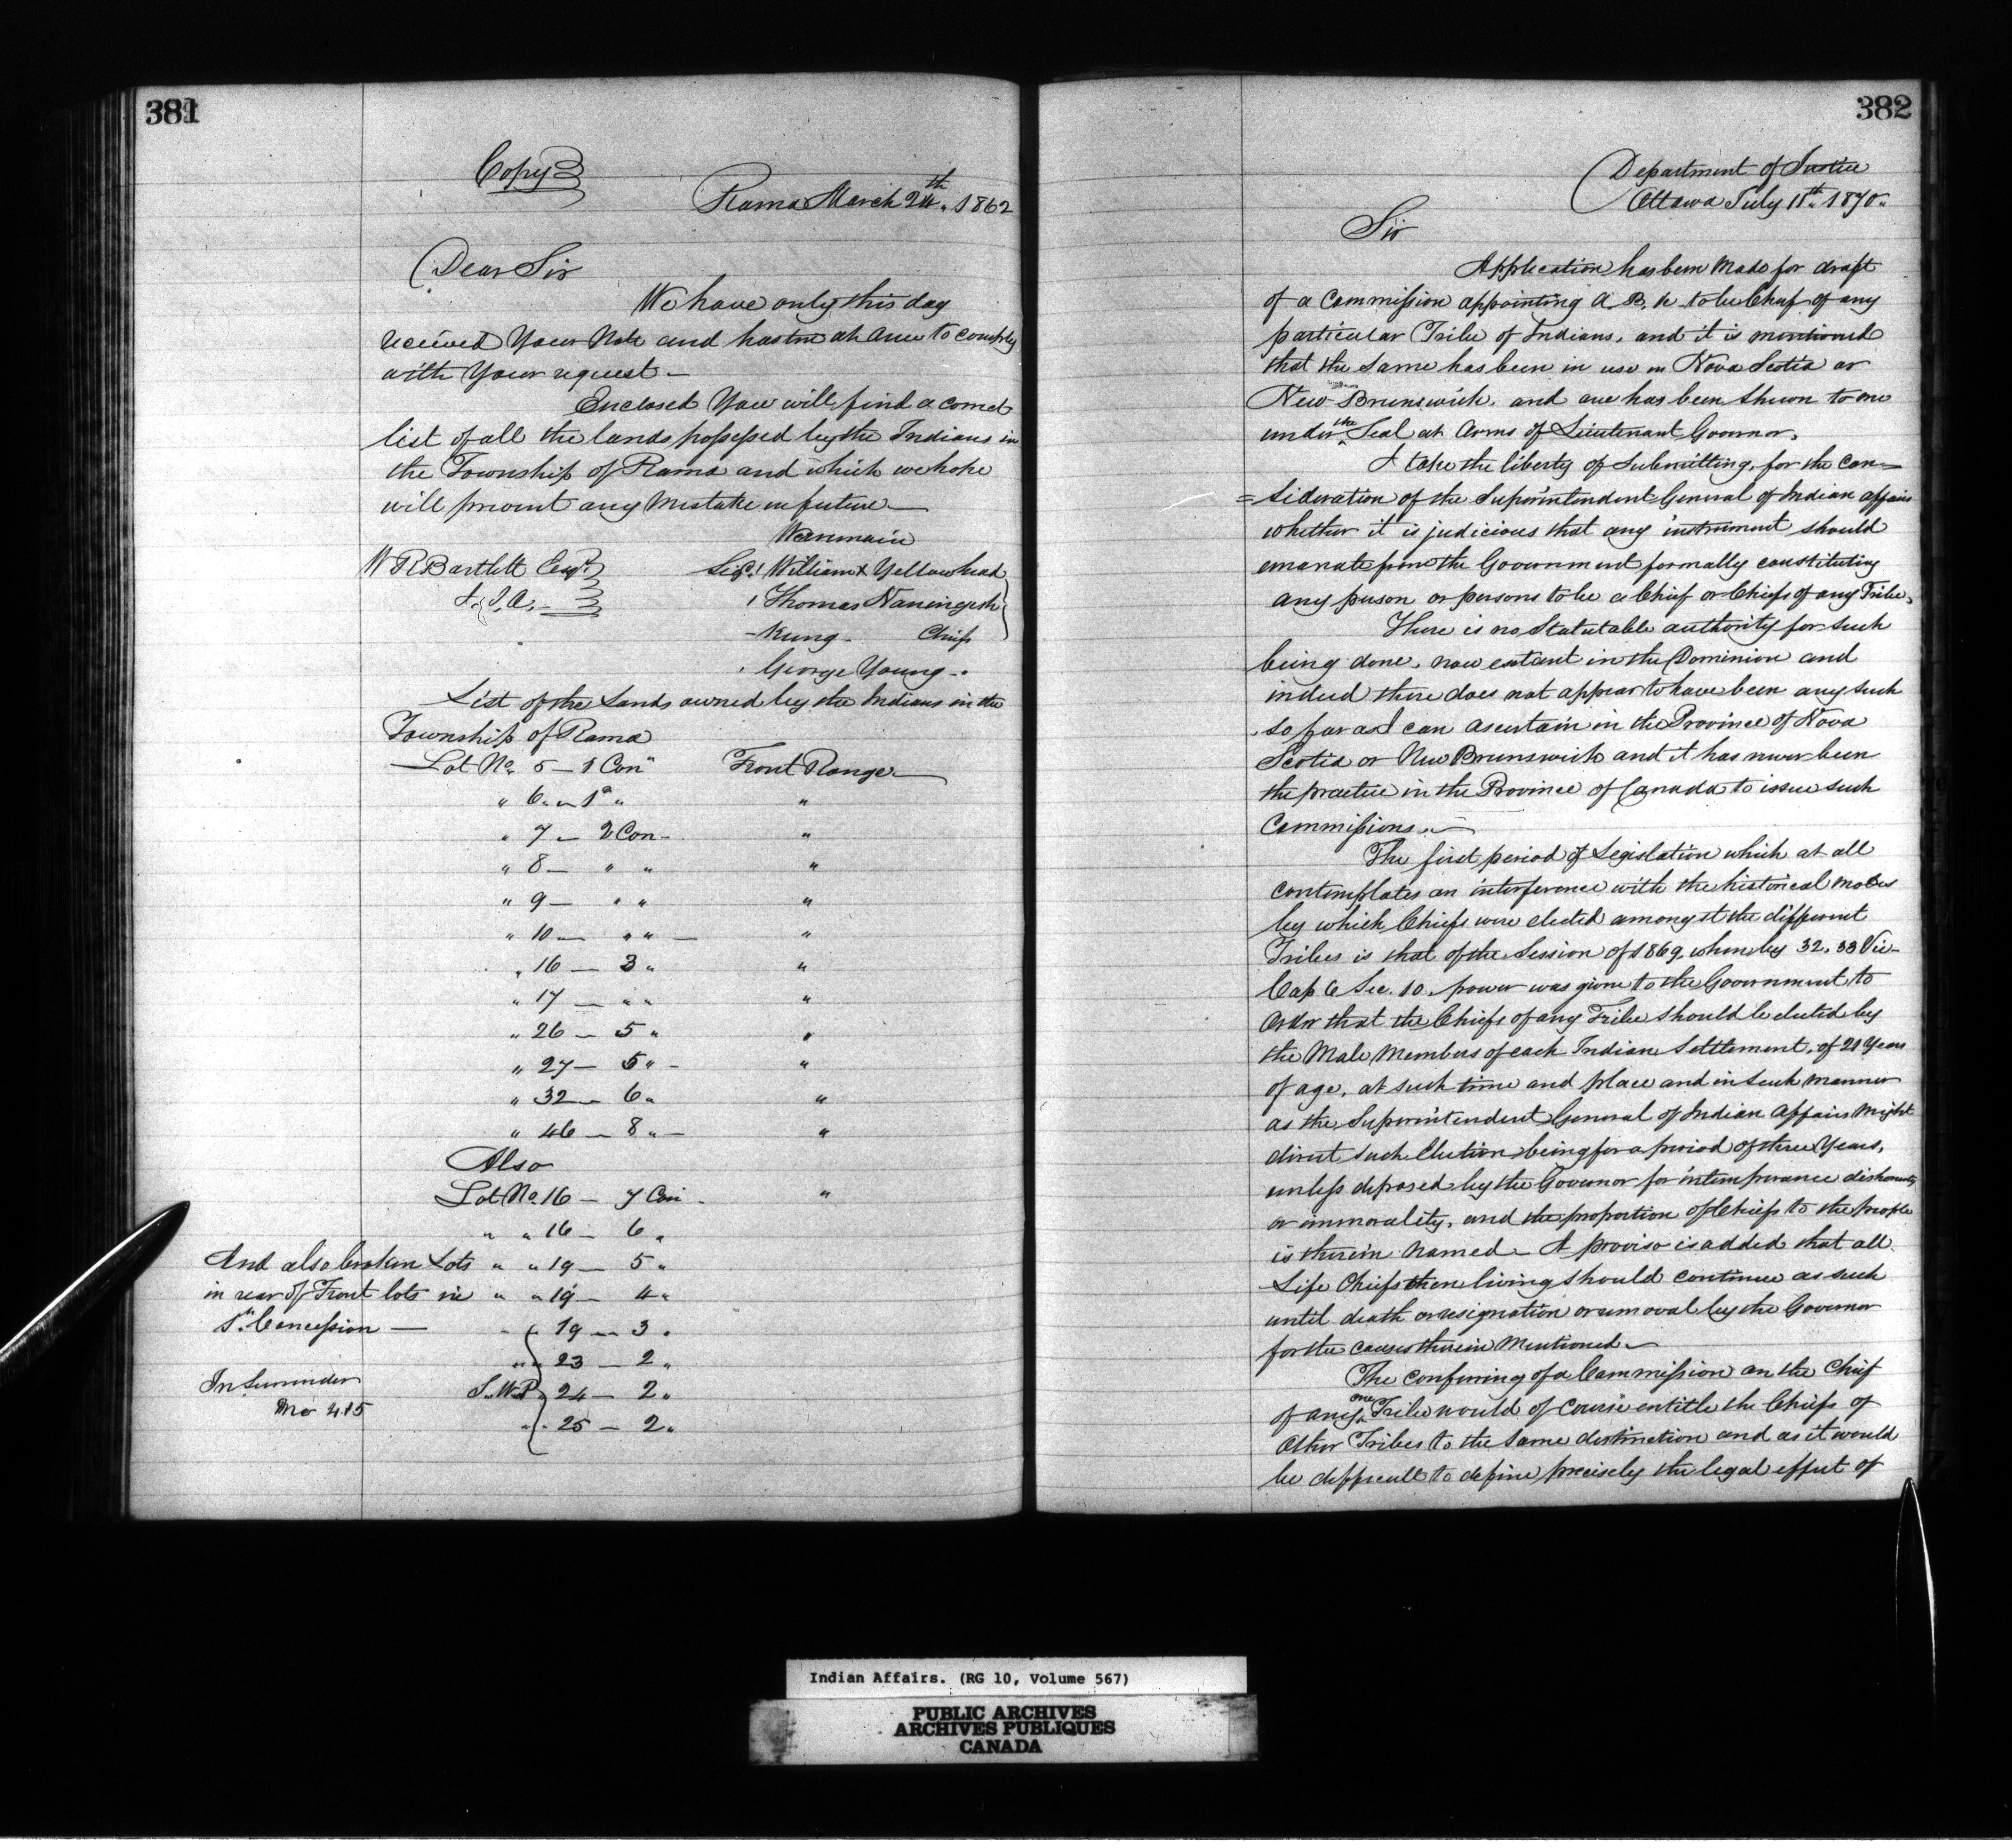 381
Copy
Rama March 24th, 1862
Dear Sir
We have only this day
received Your Note and hasten at once to comply
with Your request —
Enclosed You will find a correct
list of all the lands possessed by the Indians in
the Township of Rama and which we hope
will prevent any Mistake in future —
We remain
W R Bartlett Esqr
S. I. A.
Sigd. William X Yellowhead
" Thomas Naningesh
- Kung - Chiefs
" George Young -
List of the Lands owned by the Indians in the
Township of Rama
Lot No. 5 — 1 Con" Front Range —
" 6 " — 1st " "
" 7 — 2 Con — "
" 8 — " " "
" 9 — " " "
" 10 — " " — "
" 16 — 3 " "
" 17 — " " "
" 26 — 5 " "
" 27 — 5 " — "
" 32 — 6 " "
" 46 — 8 " — "
Also
Lot No. 16 — 7 Con — "
" " 16 — 6 "
And also broken Lots " " 19 — 5 "
in rear of Front lots in " " 19 — 4 "
1st Concession — " " 19 — 3 "
" " 23 — 2 "
In Surrender S. W. P 24 — 2 "
No 415
" " 25 — 2 "
382
Department of Justice
Ottawa July 11th 1870
Sir
Application has been made for draft
of a Commission appointing A. B. to be Chief of any
particular Tribe of Indians, and it is mentioned
that the same has been in use in Nova Scotia or
New Brunswick, and one has been shewn to me
under the Seal at Arms of Lieutenant Governor,
I take the liberty of submitting, for the con=
=sideration of the Superintendent General of Indian affairs
whether it is judicious that any instrument should
emanate from the Government formally constituting
any person or persons to be a Chief or Chiefs of any Tribe,
There is no Statutable authority for such
being done, now extant in the Dominion and
indeed there does not appear to have been any such
so far as I can ascertain in the Province of Nova
Scotia or New Brunswick and it has never been
the practice in the Province of Canada to issue such
Commissions. —
The first period of Legislation which at all
contemplates an interference with the historical modes
by which Chiefs were elected amongst the different
Tribes is that of the Session of 1869, when by 32. 33 Vic-
Cap 6 Sec. 10. power was given to the Government to
Order that the Chiefs of any Tribe should be elected by
the Male Members of each Indian Settlement, of 21 Years
of age, at such time and place and in such manner
as the Superintendent General of Indian Affairs Might
direct such Election being for a period of three Years,
unless deposed by the Governor for intemperance dishonesty
or immorality, and the proportion of Chiefs to the people
is therein named — A proviso is added that all
Life Chiefs then living should continue as such
until death or resignation or removal by the Governor
for the causes therein Mentioned —
The conferring of a Commission on the Chief
of any one Tribe would of course entitle the Chiefs of
Other Tribes to the same distinction and as it would
be difficult to define precisely the legal effect of
Indian Affairs. (RG 10, Volume 567)
PUBLIC ARCHIVES
ARCHIVES PUBLIQUES
CANADA